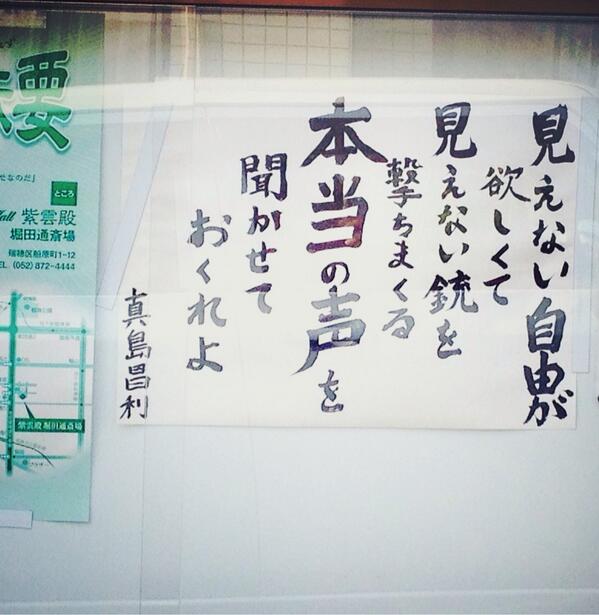 見えない自由が
欲しくて
見えない銃を
撃ちまくる
本当の声を
聞かせて
おくれよ
真島昌利
要
せなのだ」
ところ
all 紫雲殿
堀田通斎場
瑞穂区船原町1-12
EL. (052) 872-4444
紫雲殿 堀田通斎場